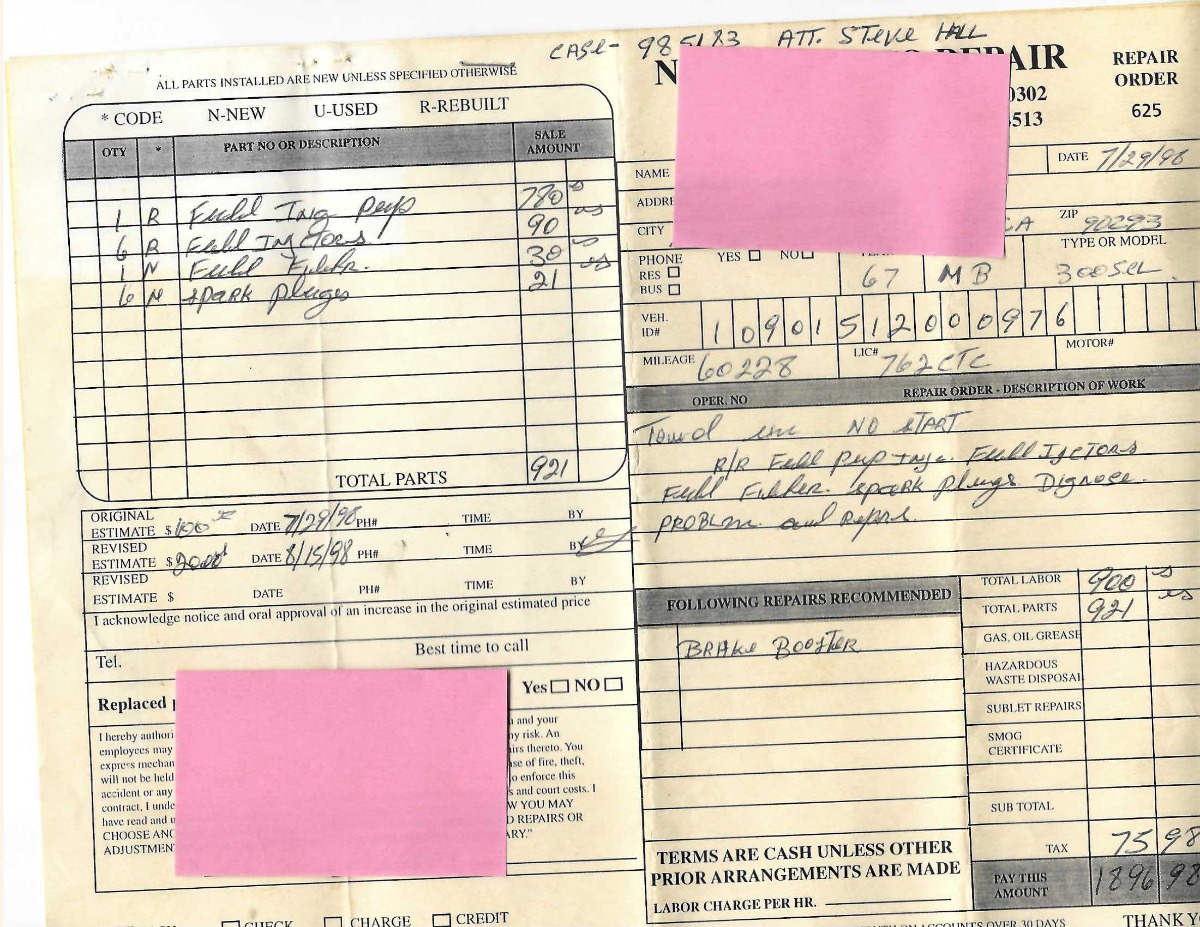 CASE- 985183 ATT. Steve HALL
ALL PARTS INSTALLED ARE NEW UNLESS SPECIFIED OTHERWISE
* CODE N-NEW U-USED R-REBUILT
QTY * PART NO OR DESCRIPTION SALE AMOUNT
1 R Fuhl Ing Pup 780
6 R Fuhl Injctors 90
1 N Fuhl Filher. 30
6 N spark pluges 21
TOTAL PARTS 921
ORIGINAL ESTIMATE $ 100 DATE 7/29/98 PH# TIME BY
REVISED ESTIMATE $ DATE 8/15/98 PH# TIME BY
REVISED ESTIMATE $ DATE PH# TIME BY
I acknowledge notice and oral approval of an increase in the original estimated price
Tel. Best time to call
Replaced Yes NO
I hereby authori
u and your
employees may
y risk. An
express mechan
irs thereto. You
will not be held
se of fire, theft,
accident or any
o enforce this
contract, I unde
s and court costs. I
have read and u
W YOU MAY
CHOOSE ANO
D REPAIRS OR
ADJUSTMEN
ARY."
CHECK CHARGE CREDIT
N REPAIR
0302
4513
REPAIR ORDER
625
DATE 7/29/98
NAME
ADDRE
CITY CA ZIP 90293
PHONE YES NO
RES
BUS
TYPE OR MODEL
67 MB 300SEL
VEH. ID# 10901512000976
MILEAGE 60228 LIC# 762CTC MOTOR#
OPER. NO REPAIR ORDER - DESCRIPTION OF WORK
Towd in NO START
R/R Fuhl Pup Inge. Fuhl Ijctors
Fuhl Filher. spark plugs Dignose.
PROBLem and Repars.
FOLLOWING REPAIRS RECOMMENDED
BRAke Booster
TOTAL LABOR 900
TOTAL PARTS 921
GAS, OIL GREASE
HAZARDOUS WASTE DISPOSAL
SUBLET REPAIRS
SMOG CERTIFICATE
SUB TOTAL
TAX 75 98
PAY THIS AMOUNT 1896 98
TERMS ARE CASH UNLESS OTHER
PRIOR ARRANGEMENTS ARE MADE
LABOR CHARGE PER HR.
MONTH ON ACCOUNTS OVER 30 DAYS
THANK YO